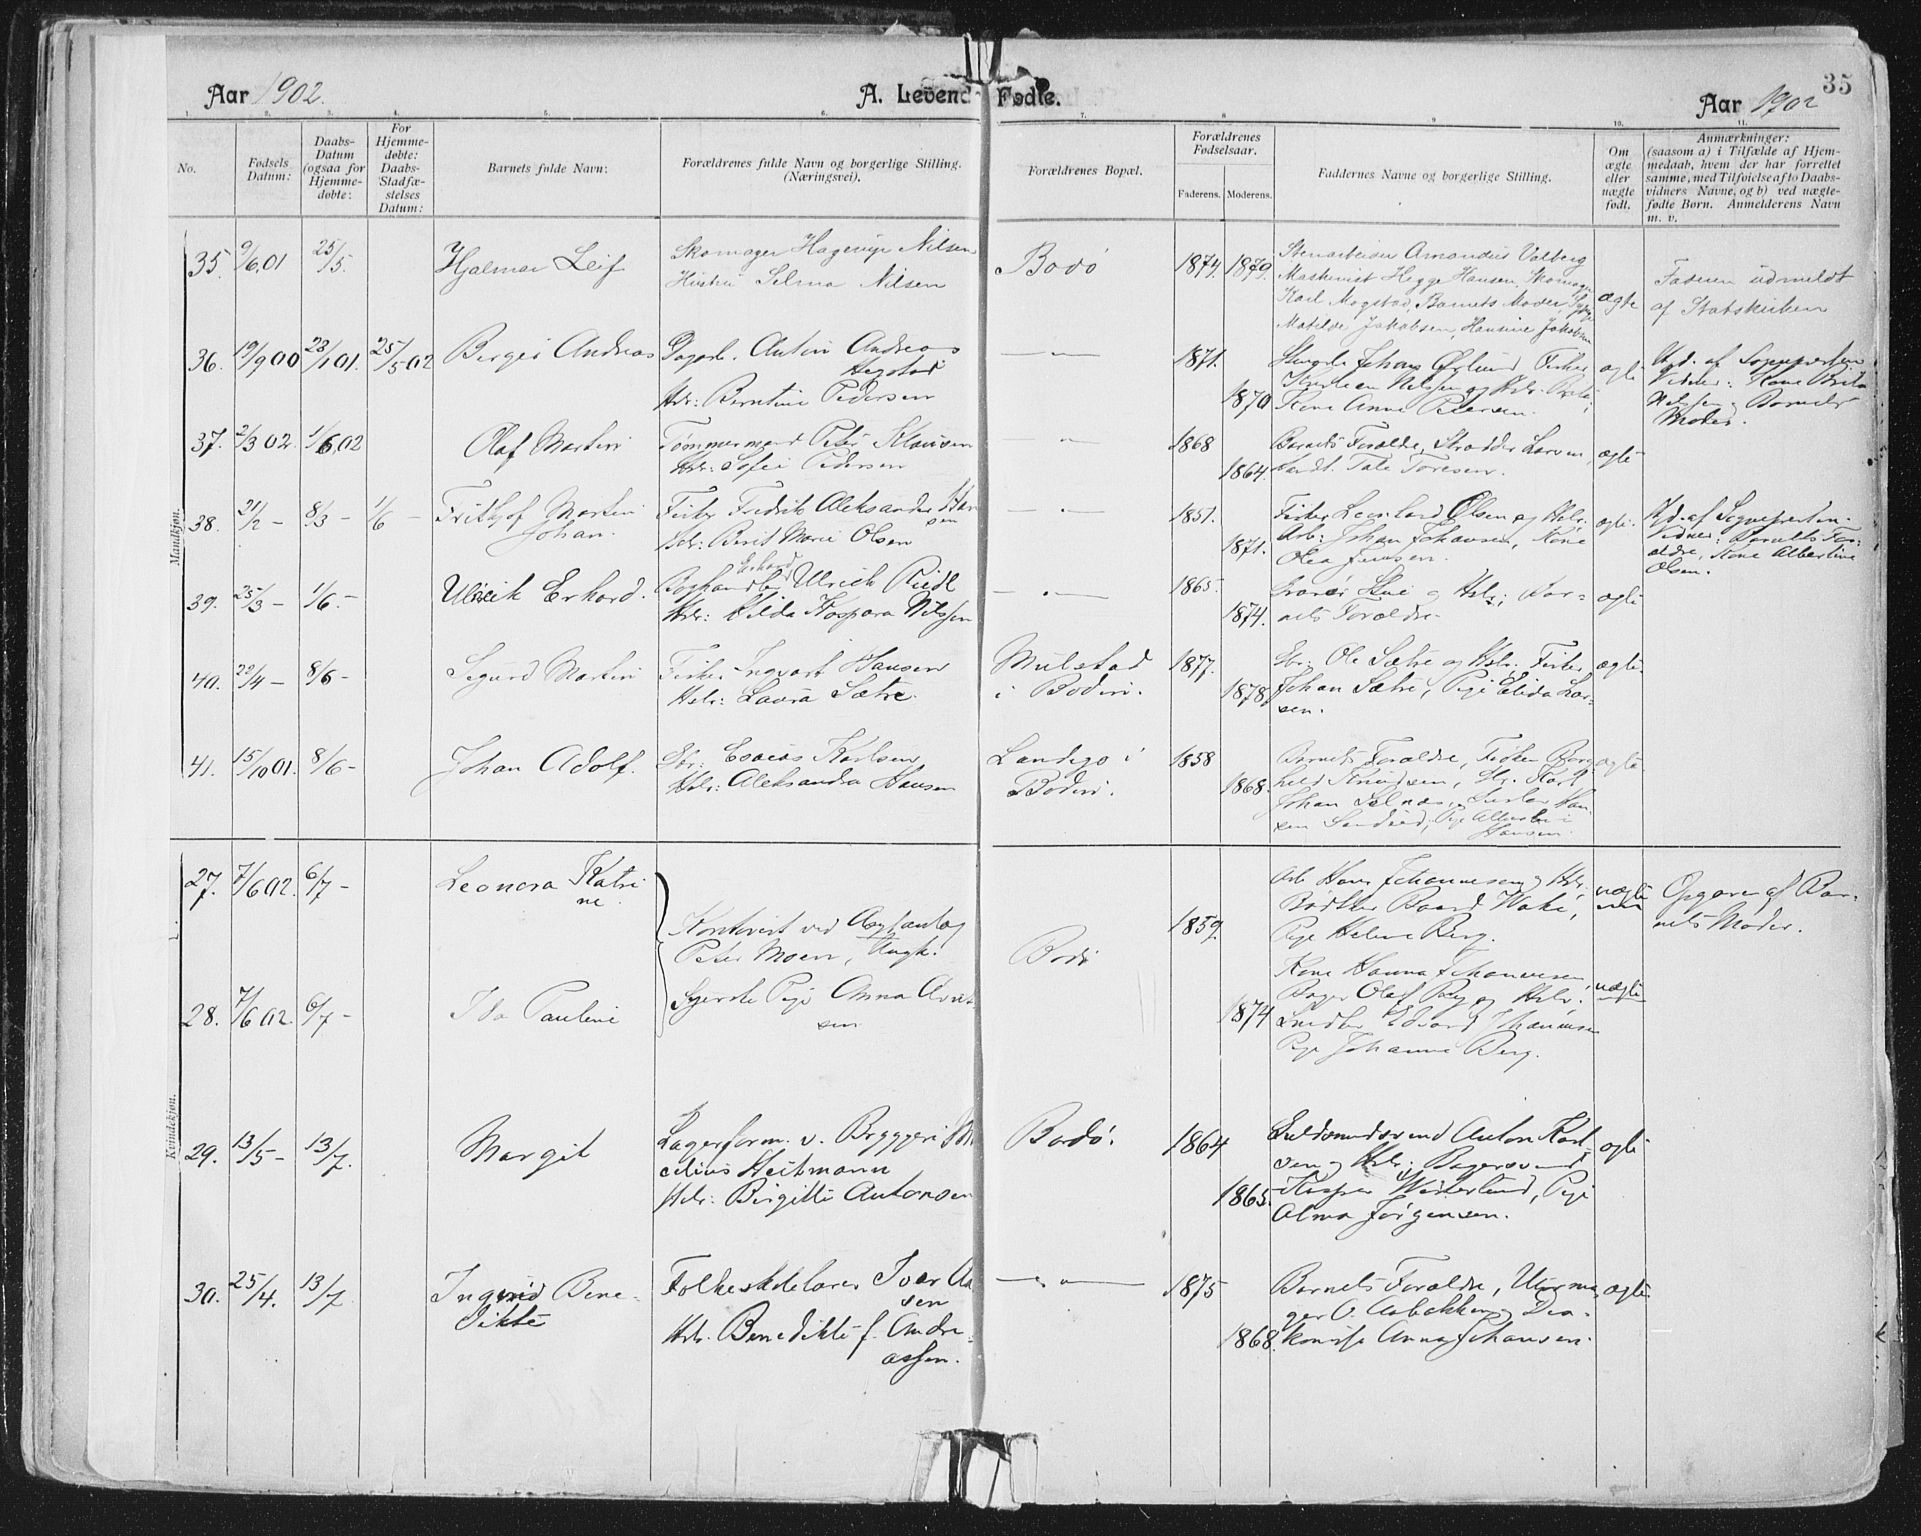 35
Aar 1902. A. Levende Fødte. Aar 1902
1. 2. 3. 4. 5. 6. 7. 8. 9. 10. 11.
No.
Fødsels
Datum:
Daabs-
Datum
(ogsaa for
Hjemme-
døbte:
For
Hjemme-
døbte:
Daabs-
Stadfæ-
stelses
Datum:
Barnets fulde Navn:
Forældrenes fulde Navn og borgerlige Stilling.
(Næringsvei).
Forældrenes Bopæl.
Forældrenes
Fødselsaar.
Faderens. Moderens.
Faddernes Navne og borgerlige Stilling.
Om
ægte
eller
uægte
født.
Anmærkninger:
(saasom a) i Tilfælde af Hjem-
medaab, hvem der har forrettet
samme, med Tilføielse af to Daabs-
vidners Navne, og b) ved uægte-
fødte Børn. Anmelderens Navn
m. v.
Mandkjøn.
35. 9/6 01 25/5. Hjalmar Leif
Skomager Hagerup Nilsen
Hustru Selma Nilsen
Bodø 1874. 1879.
Stenarbeider Amandus Valberg
Maskinist Hegge Hansen, Skomager
Karl Mogstad, Barnets Moder,
Matilde Jakobsen, Hansine Jakobsen
ægte
Faderen udmeldt
af Statskirken
36. 19/9 00 23/1 01. 25/5 02 Birger Andreas
Dagarb. Anton Andreas
Hegstad
Hstr: Berntine Pedersen
— " — 1871. 1870
Johan Øglund Fisker
Nilssen og Hstr.
Kone Anne Petersen.
ægte
Hjd. af Sognepresten
Vidner: Kone Berit
Nilssen, Barnets
Moder.
37. 2/3 02. 1/6 02 Olaf Martin
Tømmermand Peter Klausen
Hstr: Sofie Pedersen
" 1868 1864.
Barnets Forældre, Skrædder Larsen,
Tale Toresen.
ægte
38. 21/2 — 8/3 — 1/6 — Frithjof Martin
Johan.
Fisker Fredrik Aleksander Han
sen
Hstr: Berit Marie Olsen
— " — 1851. 1871.
Fisker Leonhard Olsen og Hstr.
Arb: Johan Johansen, Kone
Olea Jensen.
ægte.
Hjd. af Sognepresten.
Vidner: Barnets For-
ældre, Kone Albertine
Olsen.
39. 25/3 — 1/6 — Ulrich Erhard.
Erhard
Boghandler Ulrich Riedl
Hstr: Hilda Kaspara Nilssen
— " — 1865. 1874.
og Hstr; Bar-
nets Forældre.
ægte
40. 22/4 — 8/6 — Sigurd Martin
Fisker Ingvart Hansen
Hstr: Laura Sætre.
Mulstad
i Bodin.
1877. 1878.
Gbr: Ole Sætre og Hstr. Fisker
Johan Sætre, Pige Elida Lar-
sen.
ægte.
41. 15/10 01. 8/6 — Johan Adolf.
Gbr: Esaias Karlsen
Hstr: Aleksandra Hansen
Landego i
Bodin.
1858 1868.
Barnets Forældre, Fisker
Knudsen, Karl
Johan Selnæs, Han-
sen Sandvid, Pige Albertine
Hansen.
ægte.
Kvindekjøn.
27. 7/6 02. 6/7 — Leonora Katri-
ne.
Kontorist ved
Peter Moen, Ungk.
Syerske Pige Anna Arnt-
sen
Bodø
1859 1874
Arb Hans Johannesen og Hstr.
Bødker Baard Wake,
Pige Helene Berg.
uægte
Opgave af Bar-
nets Moder.
28. 7/6 02. 6/7 — Ida Pauline
Kone Hanna Johannesen,
Bager Olaf Berg og Hstr.
Edvard Johannesen
Pige Johanna Berg.
uægte
29. 13/5 — 13/7. Margit
Lagerform. v. Bryggeri
celius Heitmann
Hstr: Birgitte Antonsen
Bodø.
1864 1865.
Guldsmedsvend Anton Karl-
sen og Hstr. Bagersvend
Kasper Westerlund, Pige
Alma Jørgensen.
ægte
30. 25/4. 13/7 Ingrid Bene-
dikte
Folkeskolelærer Ivar Aa
sen
Hstr. Benedikte f. Andre-
assen.
— " — 1875 1868.
Barnets Forældre, Urma-
ger O. Aabakken og Dia-
konisse Anna Johansen.
ægte